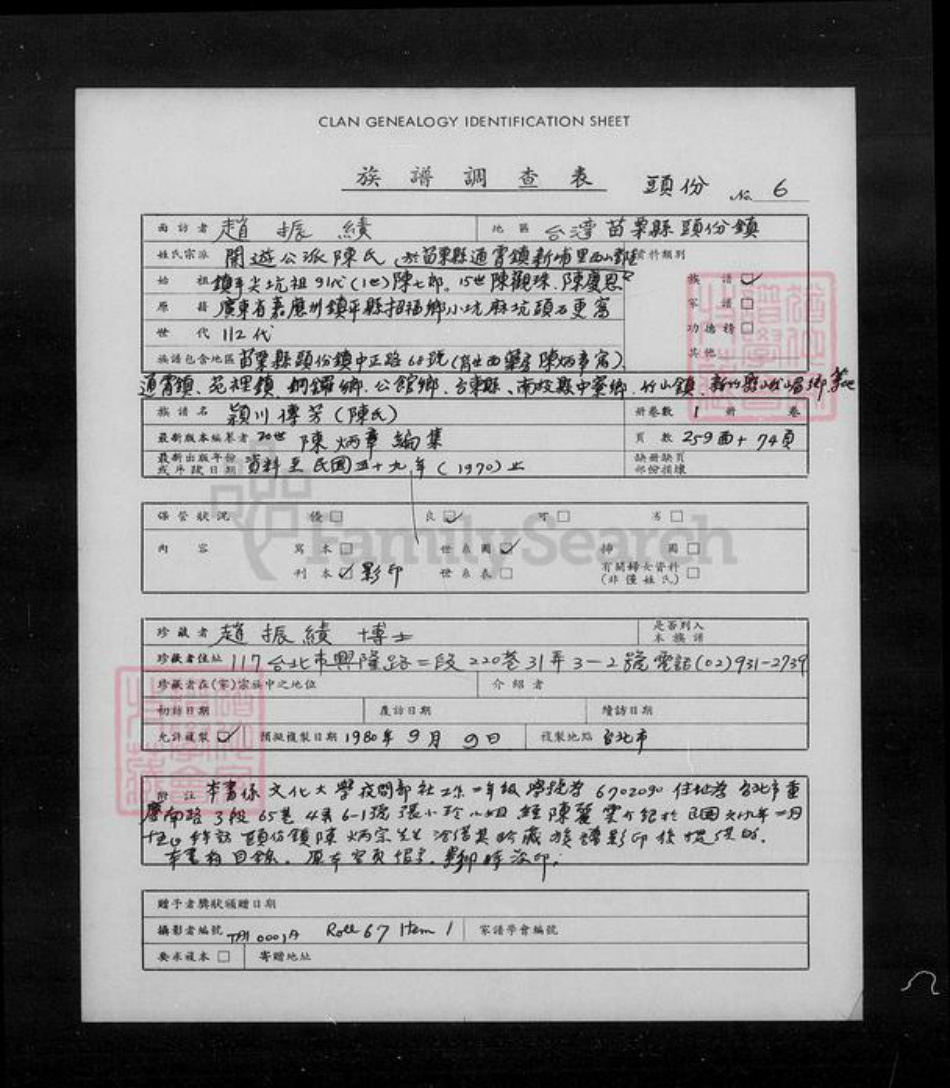 CLAN GENEALOGY IDENTIFICATION SHEET
族譜調查表 頭份 No. 6
面訪者 趙振績 地區 台灣苗栗縣頭份鎮
姓氏宗派 開遊公派陳氏 資料類別
始祖 鎮平尖坑祖91代(1世)陳七郎. 15世陳觀珠. 陳慶恩 族譜☑
原籍 廣東省嘉應州鎮平縣招福鄉小坑麻坑頭 家譜□
世代 112代 功德榜□
族譜包含地區 苗栗縣頭份鎮中正路 其他
通霄鎮、苑裡鎮. 銅鑼鄉. 公館鄉. 台東縣、南投縣中寮鄉. 竹山鎮.
族譜名 穎川傳芳(陳氏) 冊卷數 1 冊 卷
最新版本編纂者 20世 陳炳章編集 頁數 259面+74頁
最新出版年份或手謄日期 資料至民國五十九年(1970)止 缺冊缺頁部份損壞
保管狀況 優□ 良☑ 可□ 劣□
內容 寫本□ 世系圖☑ 插圖□
刊本☑影印 世系表□ 有關婦女資料(非僅姓氏)□
FamilySearch
珍藏者 趙振績 博士 是否列入本族譜
珍藏者住址 117台北市興隆路二段220巷31弄3-2號 電話(02)931-2739
珍藏者在(宗)宗族中之地位 介紹者
初訪日期 產訪日期 續訪日期
允許複製☑ 預擬複製日期 1980年9月9日 複製地點 台北市
附註 本書係文化大學夜間部社工系一年級 學號為6702090 住址為台北市重
慶南路3段65巷4弄6-1號張小珍小姐經陳麗雲介紹於民國六十九年一月
拜訪頭份鎮陳炳宗先生洽借其珍藏族譜影印後提供的.
本書有目錄.
贈予者獎狀頒贈日期
攝影者編號 Roll 67 Item 1 家譜學會編號
要求複本□ 寄贈地址